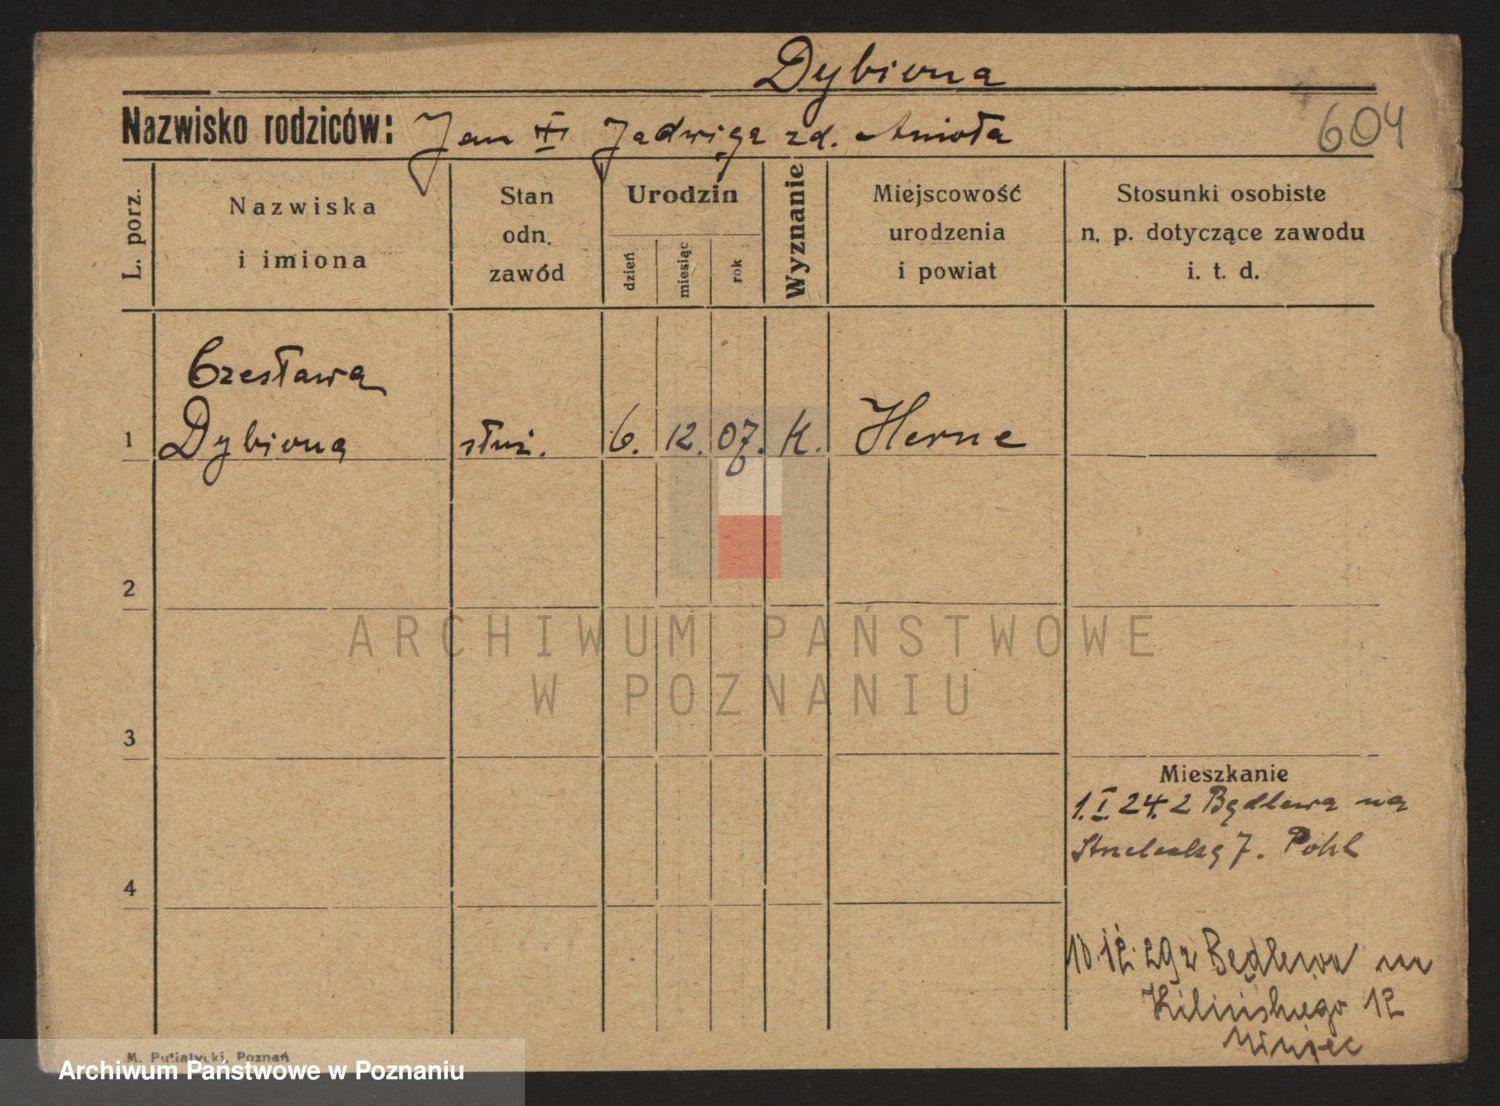 Dybiona
Nazwisko rodziców: Jan Jadwiga zd. Anioła
604
L. porz.
Nazwiska
i imiona
Stan
odn.
zawód
Urodzin
dzień
miesiąc
rok
Wyznanie
Miejscowość
urodzenia
i powiat
Stosunki osobiste
n. p. dotyczące zawodu
i. t. d.
Czesława
1 Dybiona służ. 6. 12. 07. K. Herne
2
ARCHIWUM PAŃSTWOWE
W POZNANIU
3
Mieszkanie
1.I.24. z Będlewa na
Strzelecką 7. Pohl
4
10.12.29 z Będlewa na
Kilińskiego 12
M. Putiatycki, Poznań
Archiwum Państwowe w Poznaniu